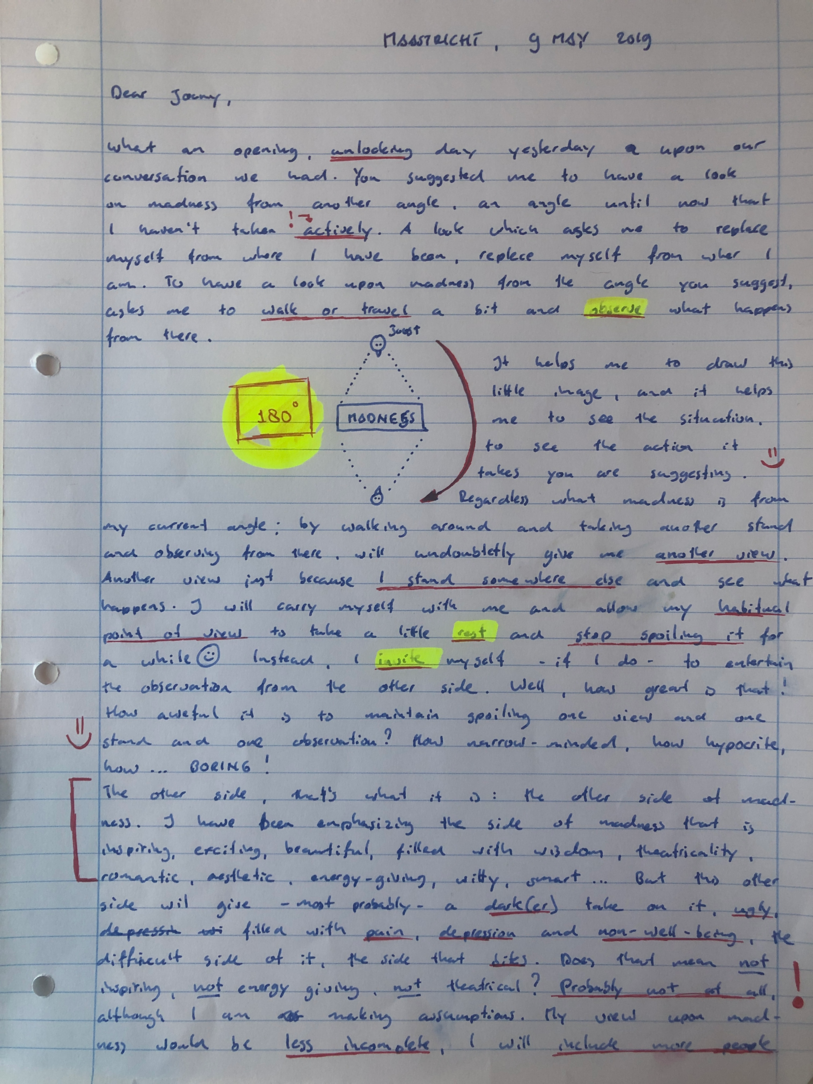 MAASTRICHT, 9 MAY 2019
Dear Jonny,
What an opening, unlocking day yesterday upon our
conversation we had. You suggested me to have a look
on madness from another angle, an angle until now that
I haven't taken ! → actively. A look which asks me to replace
myself from where I have been, replece myself from wher I
am. To have a look upon madness from the angle you suggest,
asks me to walk or travel a bit and observe what happens
from there.
Joost
It helps me to draw this
little image, and it helps
180° MADNESS me to see the situation,
to see the action it
takes you are suggesting.
Regardless what madness is from
my current angle; by walking around and taking another stand
and observing from there, will undoubletly give me another view.
Another view just because I stand somewhere else and see what
happens. I will carry myself with me and allow my habitual
point of view to take a little rest and stop spoiling it for
a while Instead, I invite myself - if I do - to entertain
the observation from the other side. Well, how great is that!
How aweful it is to maintain spoiling one view and one
stand and one observation? How narrow-minded, how hypocrite,
how ... BORING!
The other side, that's what it is: the other side of mad-
ness. I have been emphasizing the side of madness that is
inspiring, exciting, beautiful, filled with wisdom, theatricality,
romantic, aesthetic, energy-giving, witty, smart ... But this other
side wil give - most probably - a dark(er) take on it, ugly,
filled with pain, depression and non-well-being, the
difficult side of it, the side that bites. Does that mean not
inspiring, not energy giving, not theatrical? Probably not at all, !
although I am making assumptions. My view upon mad-
ness would be less incomplete, I will include more people